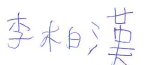 李柏漢